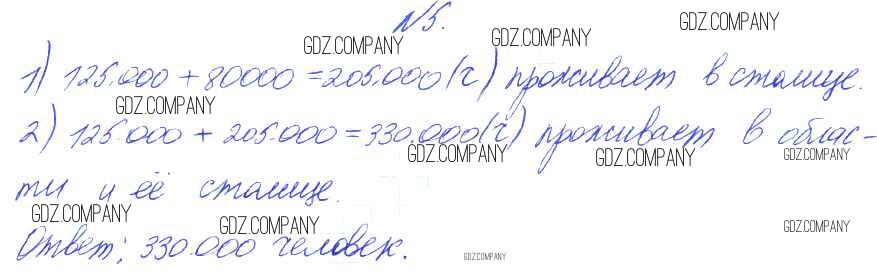 №5.
GDZ.COMPANY GDZ.COMPANY GDZ.COMPANY
1) 125.000 + 80000 = 205.000 (ч) проживает в столице.
GDZ.COMPANY
2) 125.000 + 205.000 = 330.000 (ч) проживает в облас-
GDZ.COMPANY GDZ.COMPANY GDZ.COMPANY
ти и её столице.
GDZ.COMPANY GDZ.COMPANY GDZ.COMPANY
Ответ: 330.000 человек.
GDZ.COMPANY